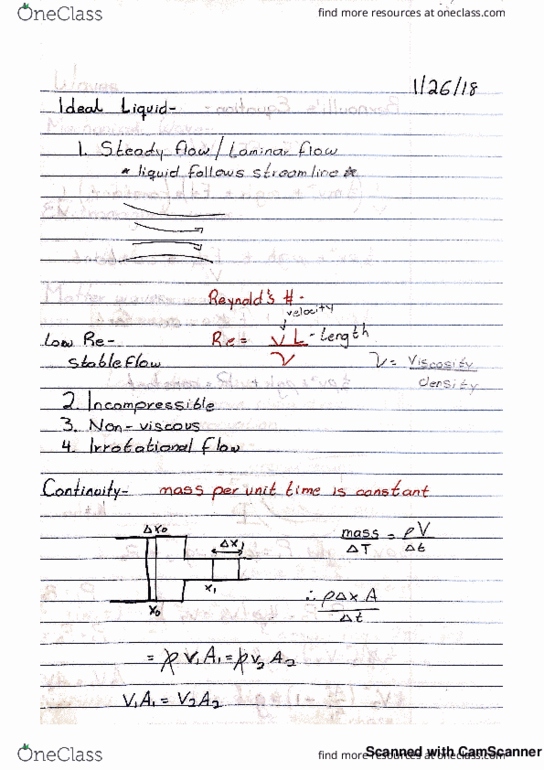 OneClass
find more resources at oneclass.com
1/26/18
Ideal Liquid-
1. Steady flow / Laminar flow
* liquid follows streamline *
Reynold's # -
velocity
Low Re- Re = VL - Length
stable flow ν ν = Viscosity
density
2. Incompressible
3. Non-viscous
4. Irrotational flow
Continuity- mass per unit time is constant
ΔX₀ mass = ρV
ΔX ΔT Δt
X₁ ∴ ρΔxA
X₀ Δt
= ρV₁A₁ = ρV₂A₂
V₁A₁ = V₂A₂
OneClass
find more resources at oneclass.com
Scanned with CamScanner